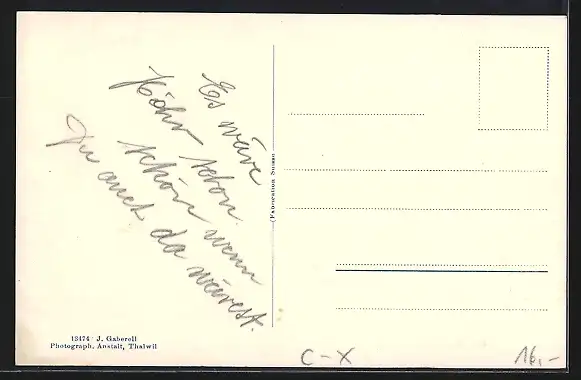 Es wäre
schon
schön wenn
Du auch da wärest.
(Fabrication Suisse)
13474 J. Gaberell
Photograph. Anstalt, Thalwil
C-X
16.-